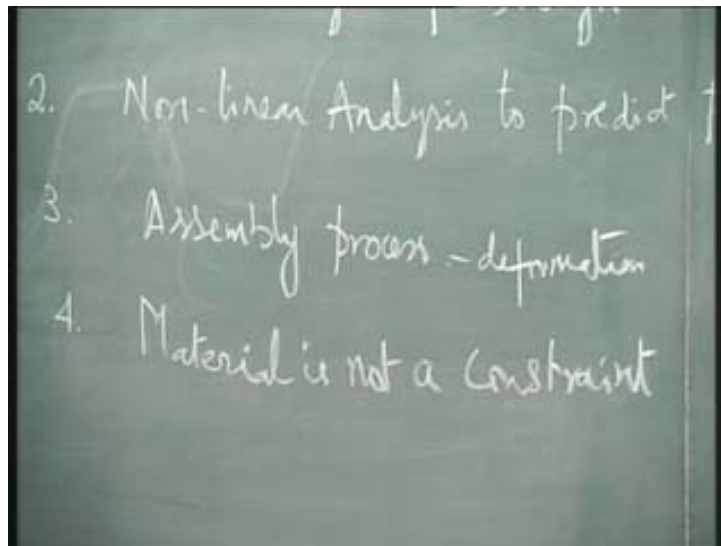 2. Non-linear Analysis to predict
3. Assembly process - deformation
4. Material is not a constraint